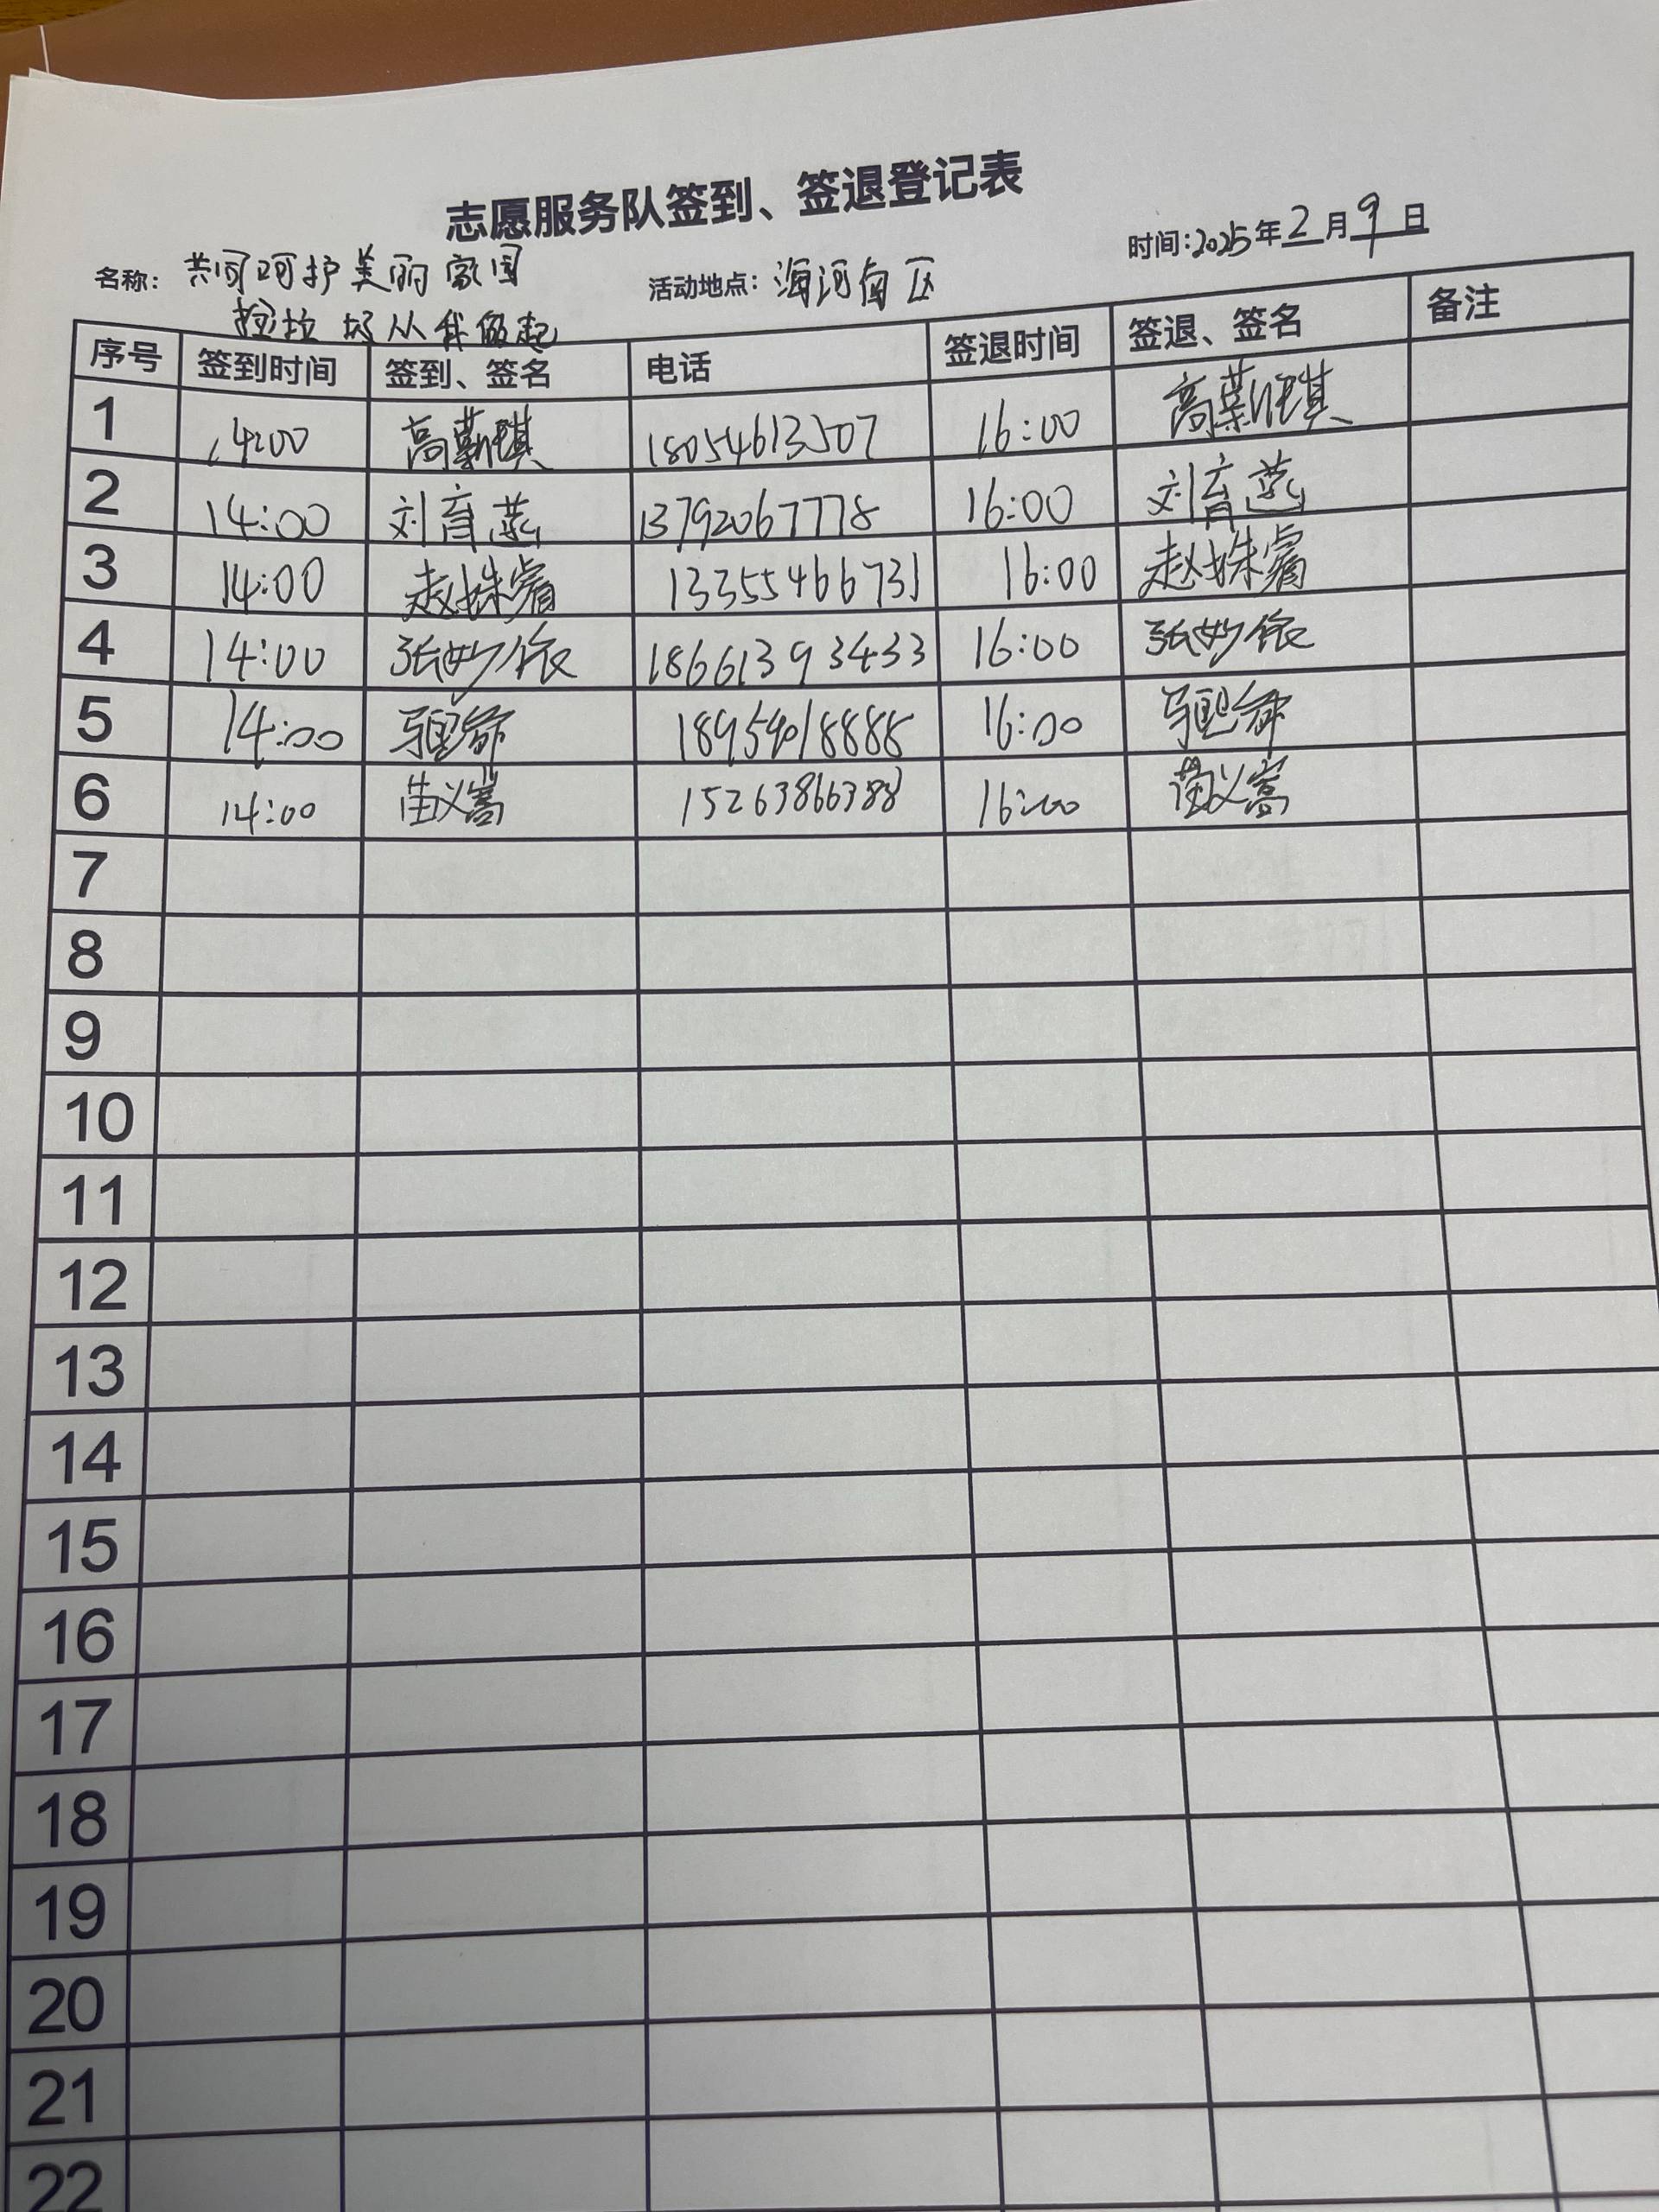 志愿服务队签到、签退登记表
名称: 共同呵护美丽家园 活动地点: 海河南区 时间:2025年2月9日
捡垃圾从我做起
序号 签到时间 签到、签名 电话 签退时间 签退、签名 备注
1 14:00 高薪琪 18054613507 16:00 高薪琪
2 14:00 刘育燕 13792067778 16:00 刘育燕
3 14:00 赵姝睿 13355466731 16:00 赵姝睿
4 14:00 张妙依 18661393433 16:00 张妙依
5 14:00 18954018888 16:00
6 14:00 苗义嵩 15263866388 16:00 苗义嵩
7
8
9
10
11
12
13
14
15
16
17
18
19
20
21
22